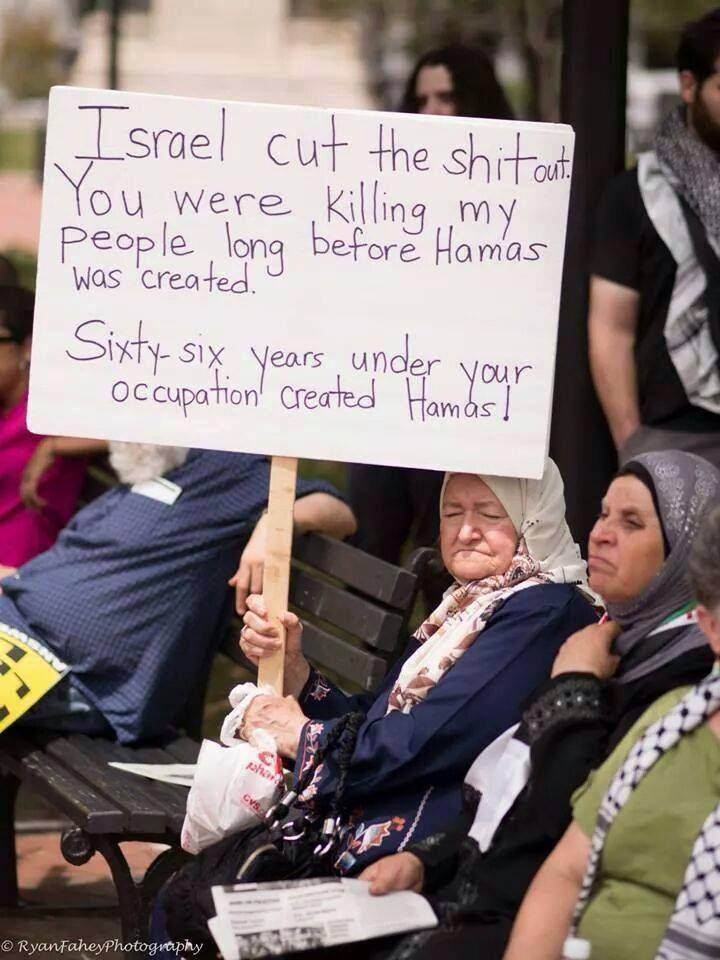 Israel cut the shit out.
You were killing my
people long before Hamas
was created.
Sixty-six years under your
occupation created Hamas!
CVS
© RyanFaheyPhotography